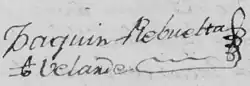 Joaquin Rebuelta
Velande